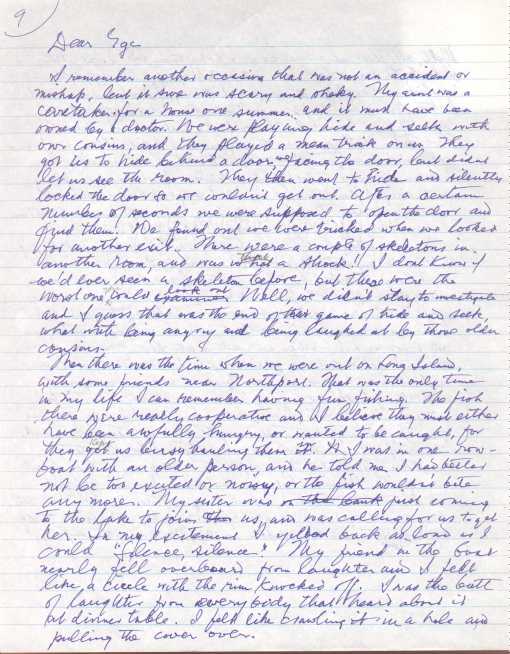 9
Dear Ege
I remember another occasion that was not an accident or
mishap, but it sure was scary and shaky. My aunt was a
caretaker for a house one summer and it must have been
owned by a doctor. We were playing hide and seek with
our cousins, and they played a mean trick on us. They
got us to hide behind a door, facing the door, but didnt
let us see the room. They then went to hide and silently
locked the door so we couldn't get out. After a certain
number of seconds we were supposed to open the door and
find them. We found out we were tricked when we looked
for another exit. There were a couple of skeletons in
another room, and was that a shock!! I dont know if
we'd ever seen a skeleton before, but these were the
worst one could look on. Well, we didn't stay to investigate
and I guess that was the end of that game of hide and seek,
what with being angry and being laughed at by those older
cousins.
Then there was the time when we were out on Long Island,
with some friends near Northport. That was the only time
in my life I can remember having fun fishing. The fish
there were really cooperative and I believe they must either
have been awfully hungry, or wanted to be caught, for
they kept us busy hauling them in. I was in one row-
boat with an older person, and he told me I had better
not be too excited or noisy, or the fish wouldn't bite
any more. My sister was just coming
to the lake to join us, and was calling for us to get
her. In my excitement I yelled back as loud as I
could "Silence, silence!" My friend in the boat
nearly fell overboard from laughter and I felt
like a circle with the rim knocked off. I was the butt
of laughter from everybody that heard about it
at dinner table. I felt like crawling in a hole and
pulling the cover over.